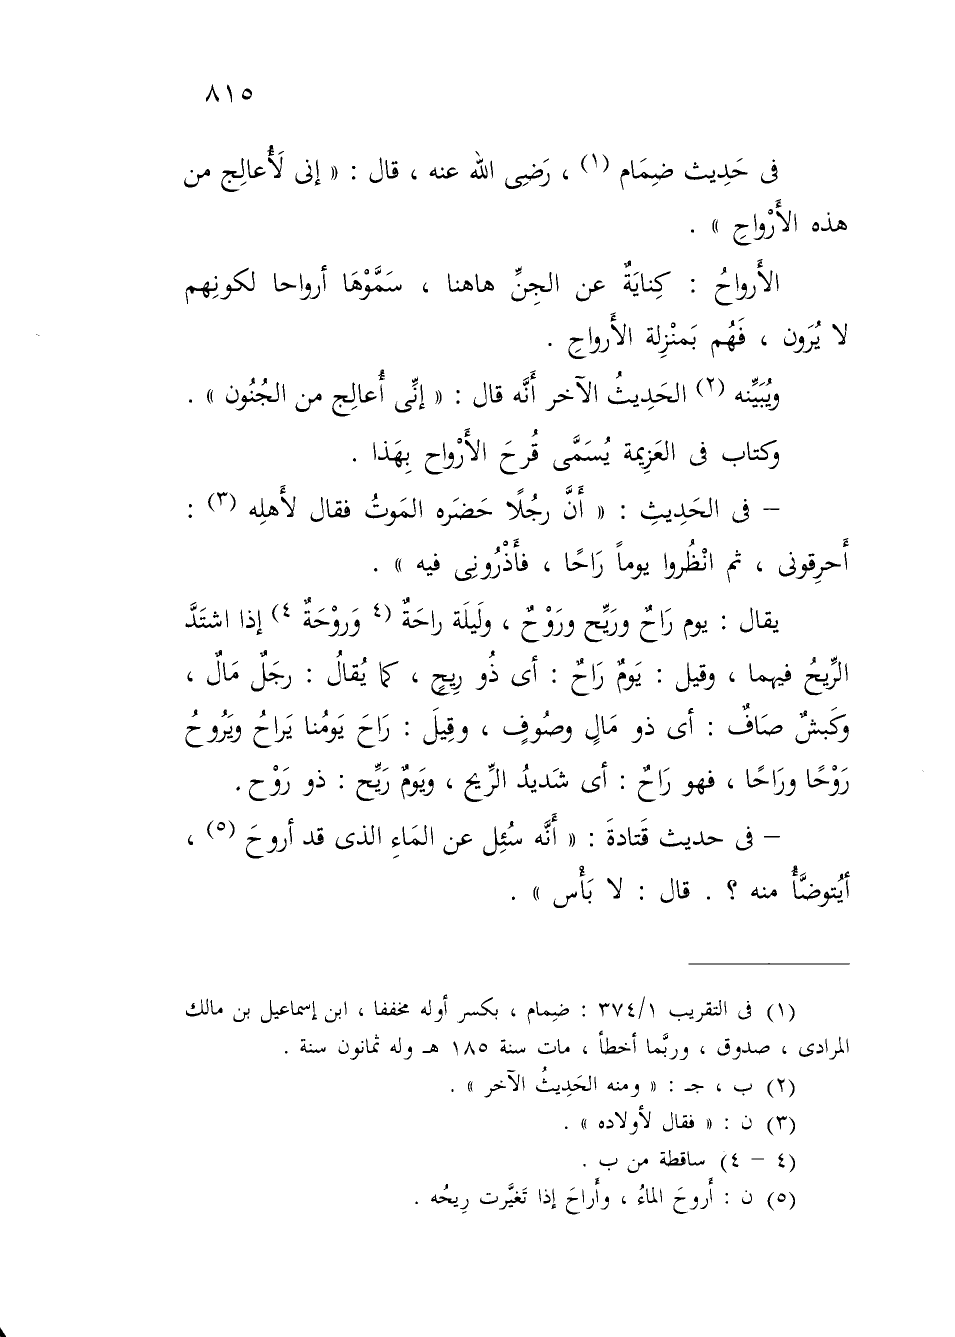 ٨١٥
فى حَدِيث ضِمَام (١) ، رَضِى الله عنه ، قال : « إنى لَأُعالِج من
هذه الأَرْواحِ » .
الأَرواحُ : كِنايَةٌ عن الجِنِّ هاهنا ، سَمَّوْهَا أرواحا لكونِهم
لا يُرَون ، فَهُم بَمنْزِلة الأَرواحِ .
ويُبَيِّنه (٢) الحَدِيثُ الآخر أَنَّه قال : « إنِّى أُعالِج من الجُنُون » .
وكتاب فى العَزِيمة يُسَمَّى قُرحَ الأَرْواح بِهَذا .
– فى الحَدِيثِ : « أَنَّ رجُلًا حَضَره المَوتُ فقال لأَهلِه (٣) :
أَحرِقونى ، ثم انْظُروا يوماً رَاحًا ، فأَذْرُونِى فيه » .
يقال : يوم رَاحٌ ورَيِّح ورَوْحٌ ، ولَيلَة راحَةٌ (٤ وَروْحَةٌ ٤) إذا اشتَدَّ
الرِّيحُ فيهما ، وقيل : يَومٌ رَاحٌ : أى ذُو رِيحٍ ، كما يُقالُ : رجَلٌ مَالٌ ،
وكَبشٌ صَافٌ : أى ذو مَالٍ وصُوفٍ ، وقِيلَ : رَاحَ يَومُنا يَراحُ ويَرُوحُ
رَوْحًا ورَاحًا ، فهو رَاحٌ : أى شَديدُ الرِّيح ، ويَومٌ رَيِّح : ذو رَوْح .
– فى حديث قَتادةَ : « أَنَّه سُئِل عن المَاءِ الذى قد أروحَ (٥) ،
أيُتوضَّأُ منه ؟ . قال : لا بَأْس » .
(١) فى التقريب ٣٧٤/١ : ضِمام ، بكسر أوله مخففا ، ابن إسماعيل بن مالك
المرادى ، صدوق ، وربَّما أخطأ ، مات سنة ١٨٥ هـ وله ثمانون سنة .
(٢) ب ، جـ : « ومنه الحَدِيثُ الآخر » .
(٣) ن : « فقال لأولاده » .
(٤ – ٤) ساقطة من ب .
(٥) ن : أَروحَ الماءُ ، وأَراحَ إذا تَغيَّرت رِيحُه .